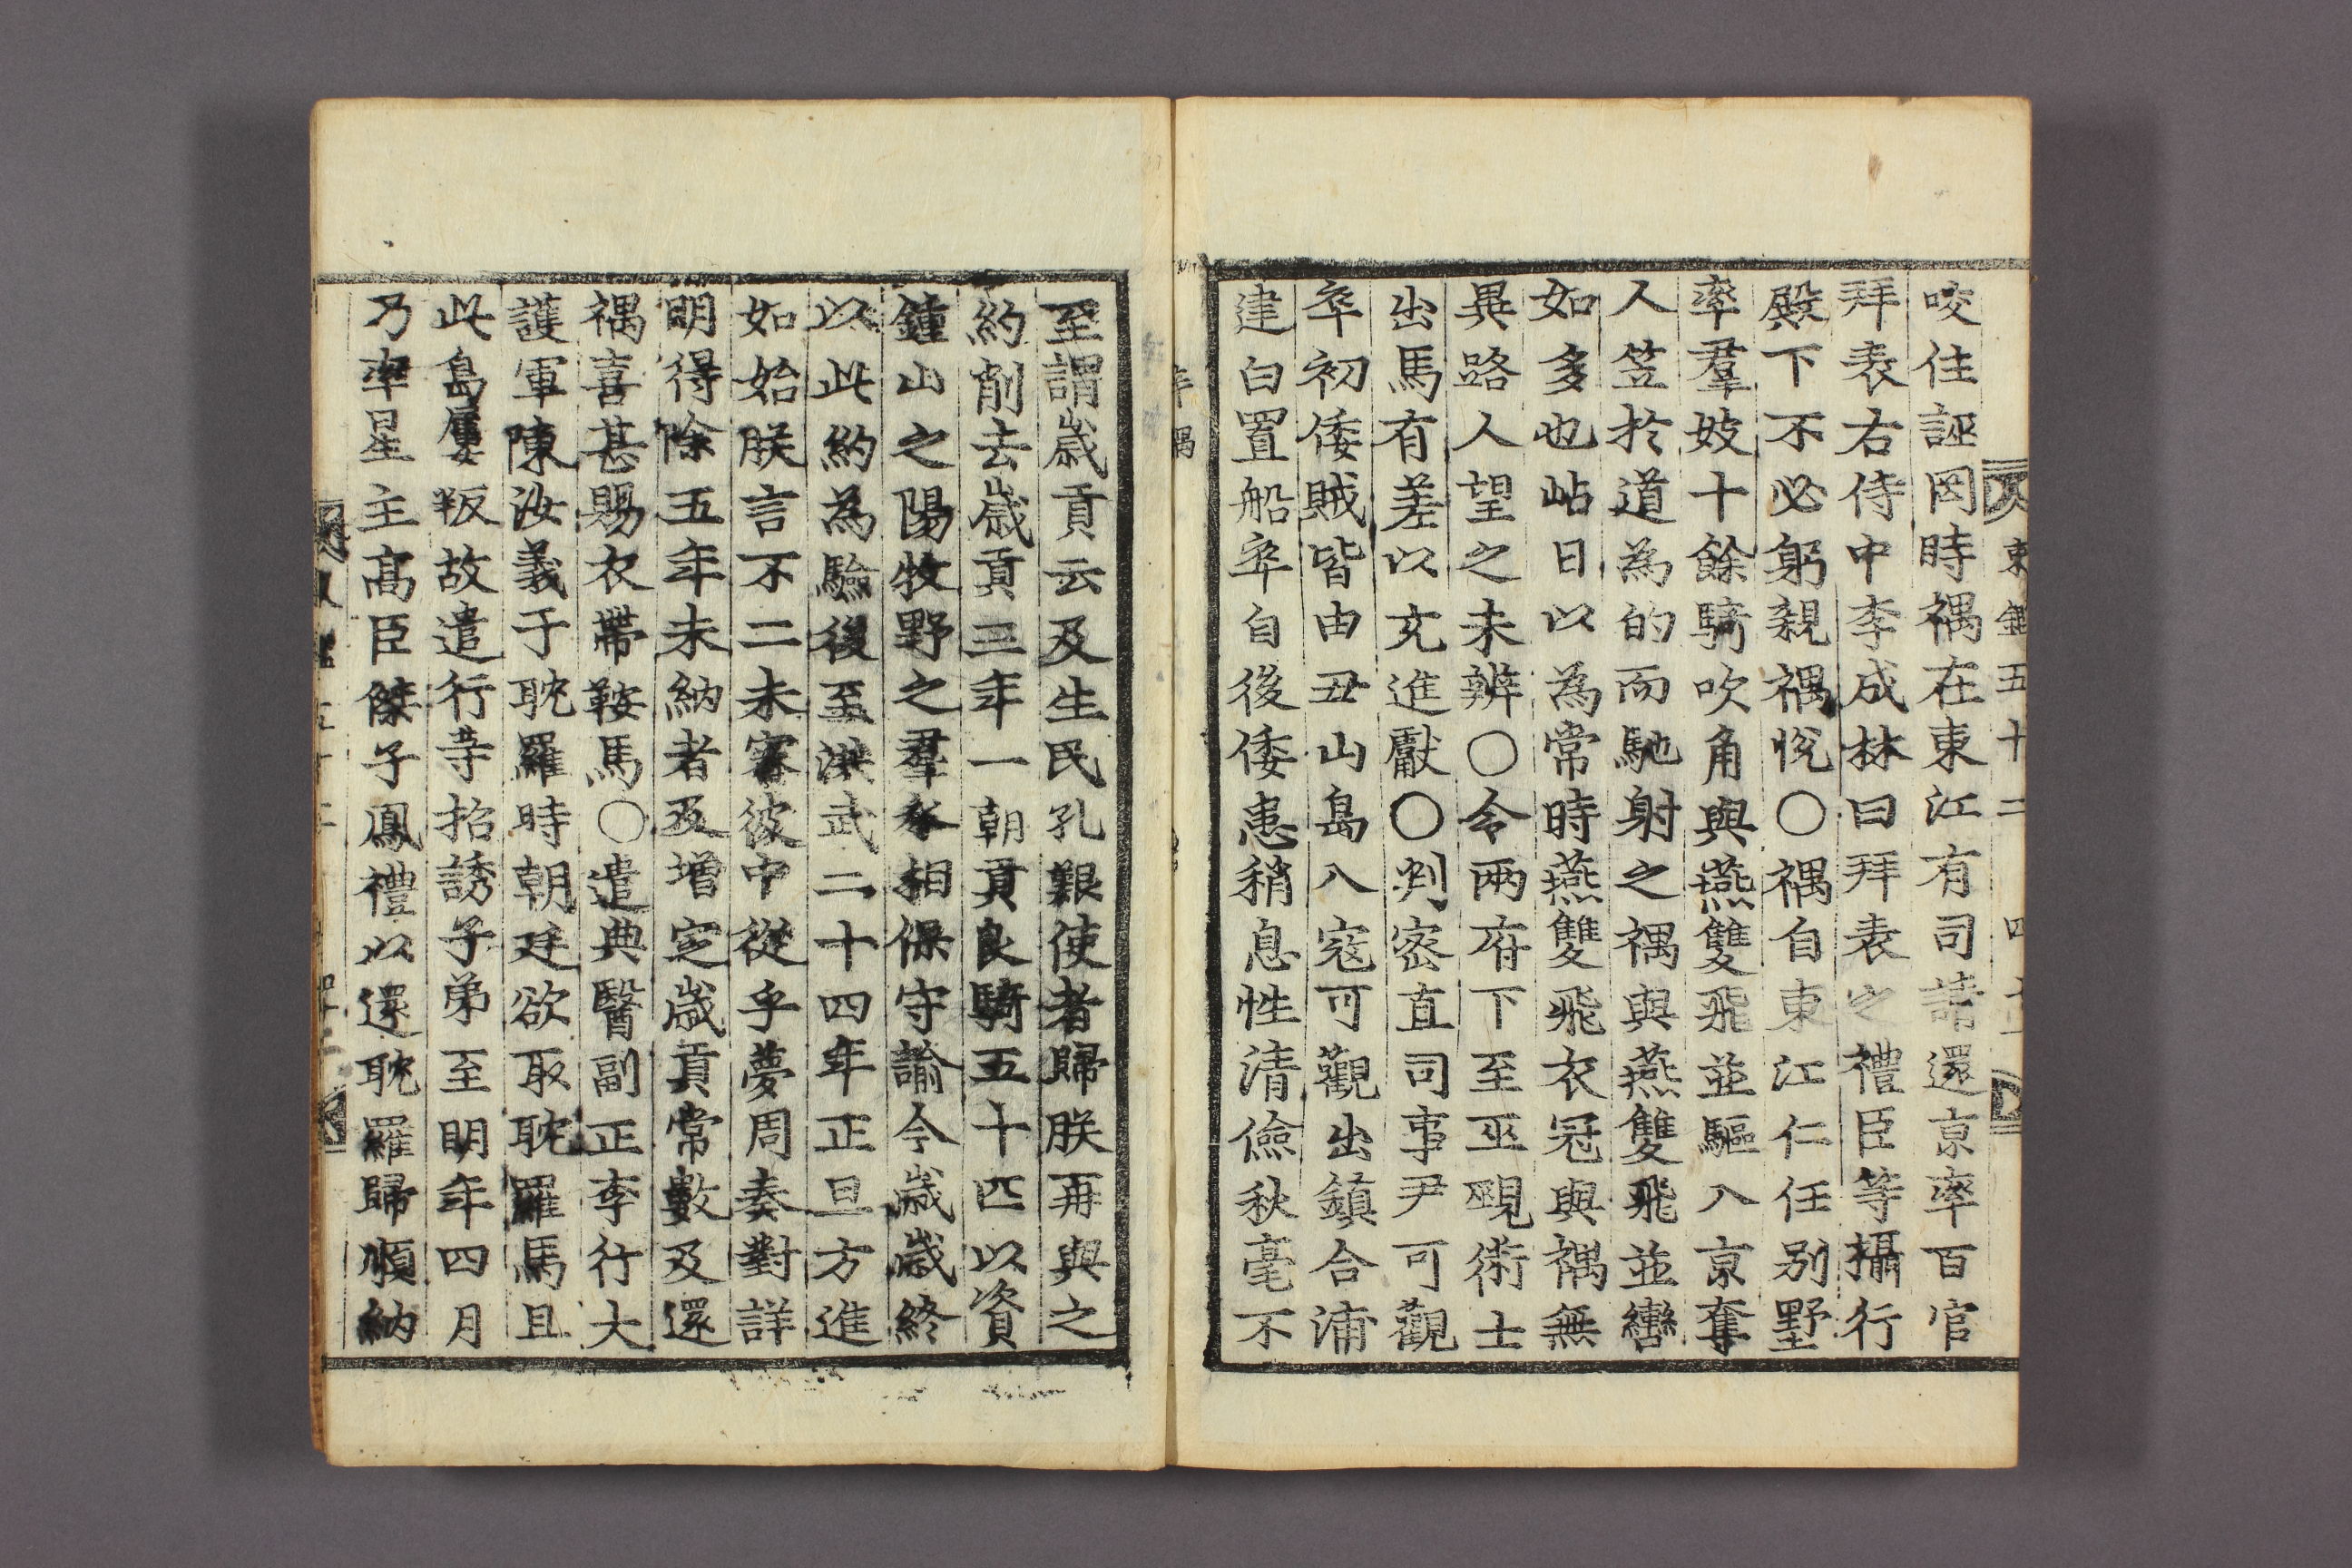 東鑑五十二 四十
咬住誣罔時禑在東江有司請還京率百官
拜表右侍中李成林曰拜表之禮臣等攝行
殿下不必躬親禑悅〇禑自東江仁任別墅
率羣妓十餘騎吹角與燕雙飛並驅入京奪
人笠於道為的而馳射之禑與燕雙飛並轡
如多也岾日以為常時燕雙飛衣冠與禑無
異路人望之未辨〇令兩府下至巫覡術士
出馬有差以充進獻〇判密直司事尹可觀
卒初倭賊皆由丑山島入寇可觀出鎮合浦
建白置船卒自後倭患稍息性清儉秋毫不
辛禑
至謂歲貢云及生民孔艱使者歸朕再與之
約削去歲貢三年一朝貢良騎五十匹以資
鍾山之陽牧野之羣永相保守諭今歲歲終
以此約為驗後至洪武二十四年正旦方進
如始朕言不二未審彼中從乎夢周奏對詳
明得除五年未納者及增定歲貢常數及還
禑喜甚賜衣帶鞍馬〇遣典醫副正李行大
護軍陳汝義于耽羅時朝廷欲取耽羅馬且
此島屢叛故遣行等招誘子弟至明年四月
乃率星主高臣傑子鳳禮以還耽羅歸順納